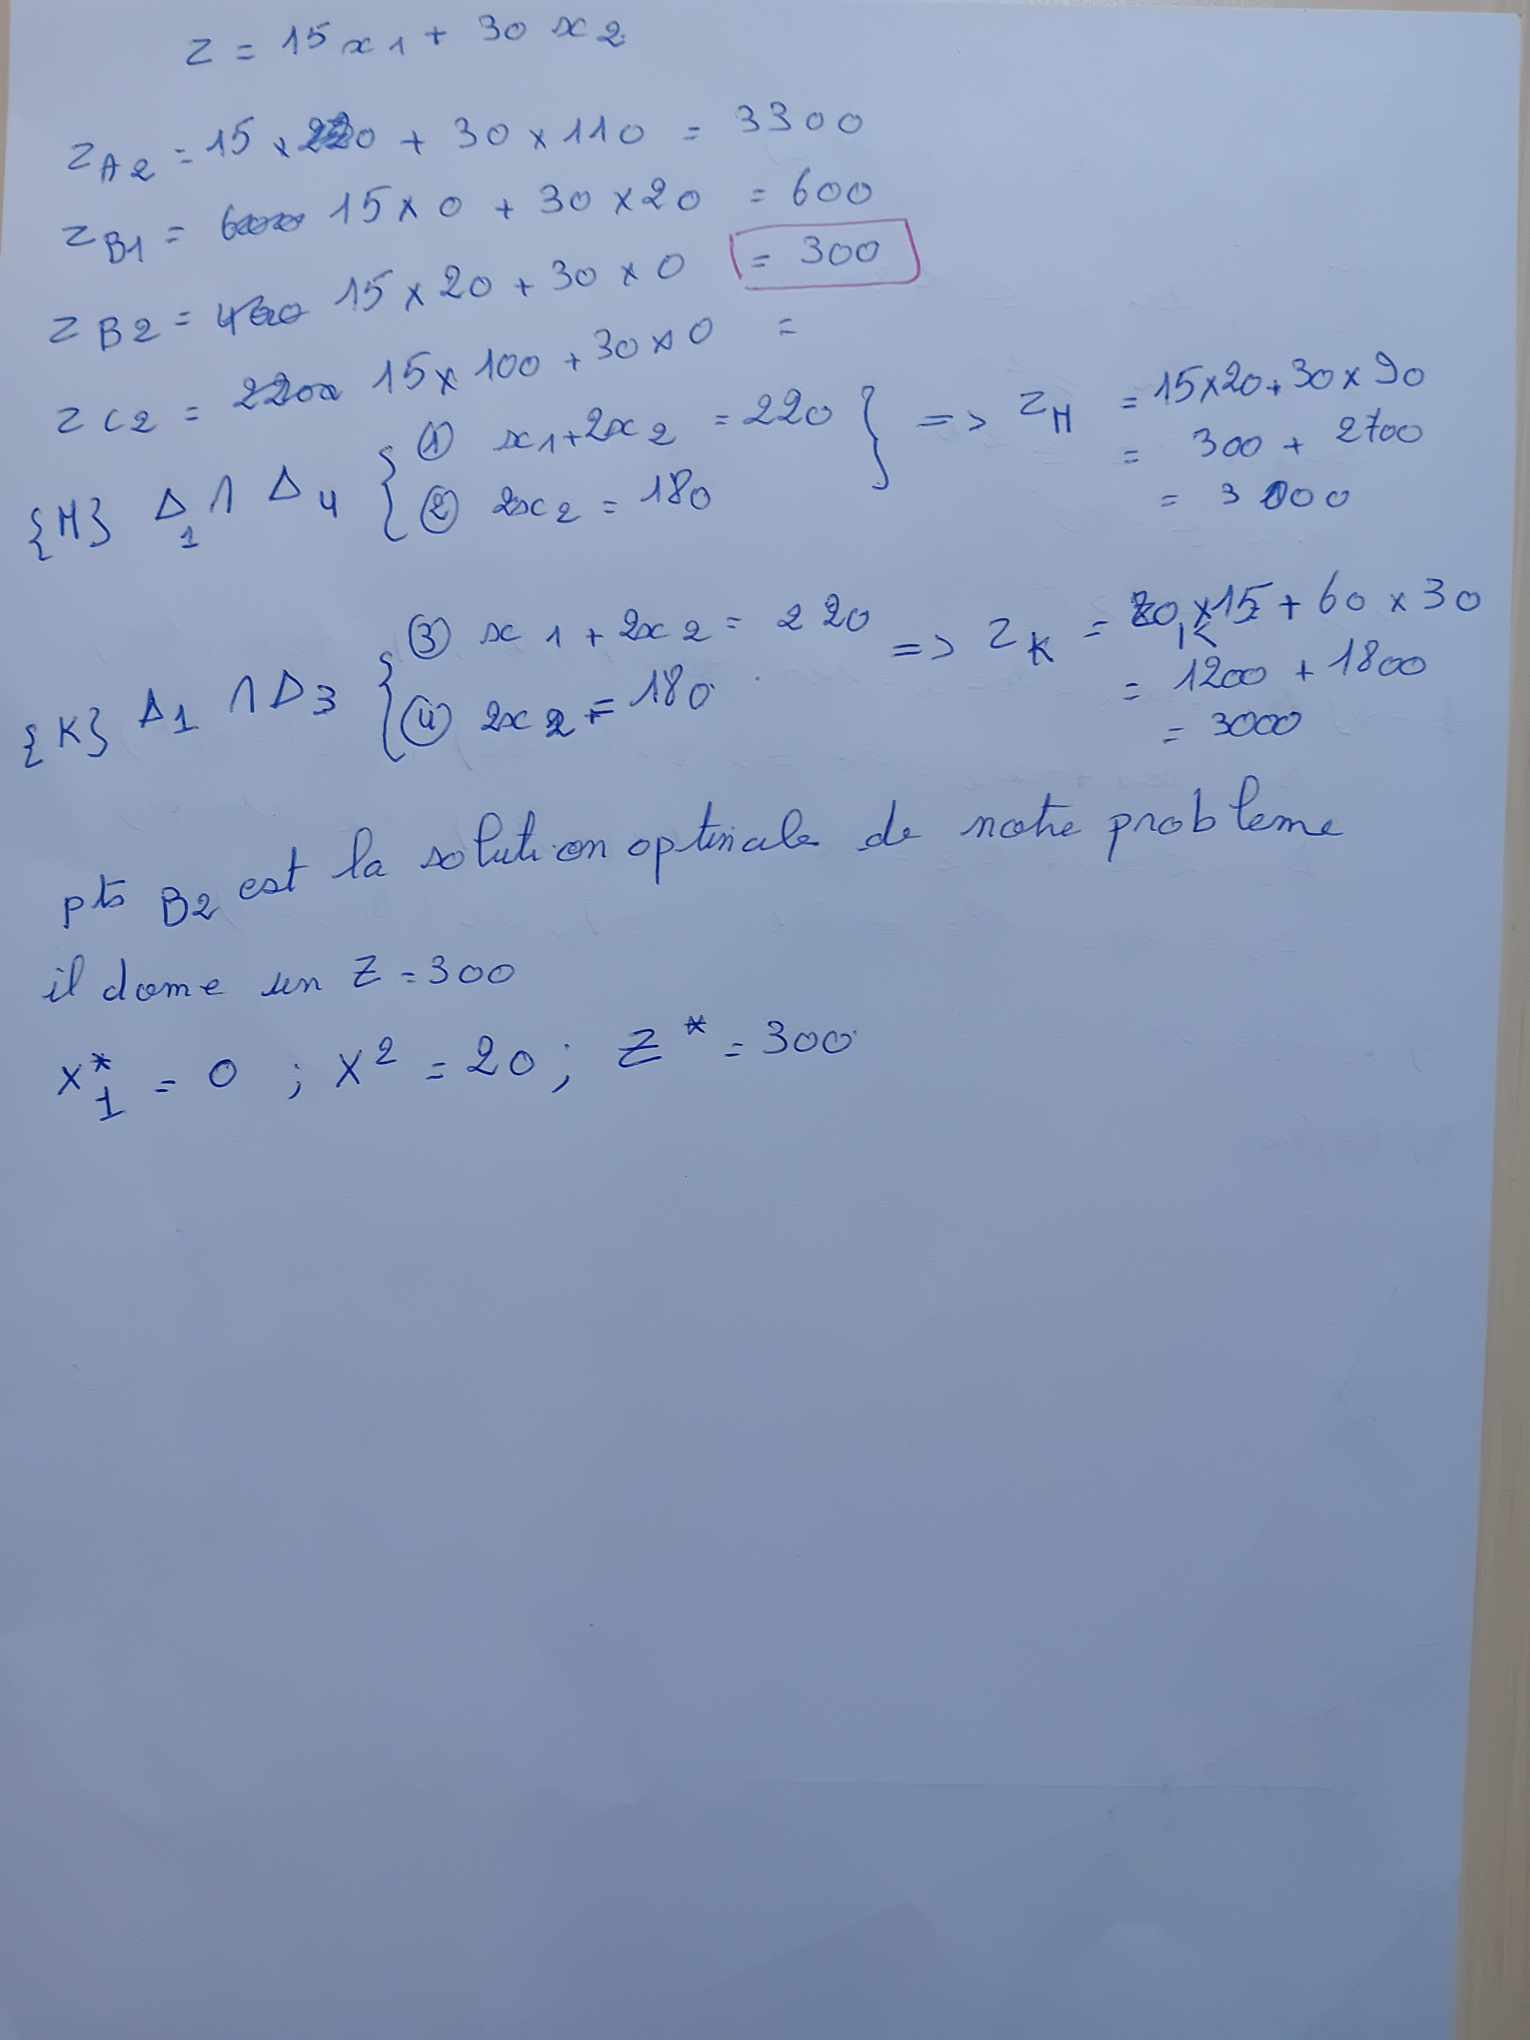 z = 15 x1 + 30 x2
zA2 = 15 x 0 + 30 x 110 = 3300
zB1 = 15 x 0 + 30 x 20 = 600
zB2 = 15 x 20 + 30 x 0 = 300
zC2 = 15 x 100 + 30 x 0 =
{M} Δ1 ∩ Δ4 { ① x1 + 2x2 = 220 } => zM = 15x20 + 30 x 90
② 2x2 = 180 = 300 + 2700
= 3000
{K} Δ1 ∩ Δ3 { ③ x1 + 2x2 = 220 => zK = x 15 + 60 x 30
④ 2x2 = 180 = 1200 + 1800
= 3000
pts B2 est la solution optimale de notre probleme
il donne un Z = 300
x*1 = 0 ; x2 = 20 ; Z* = 300